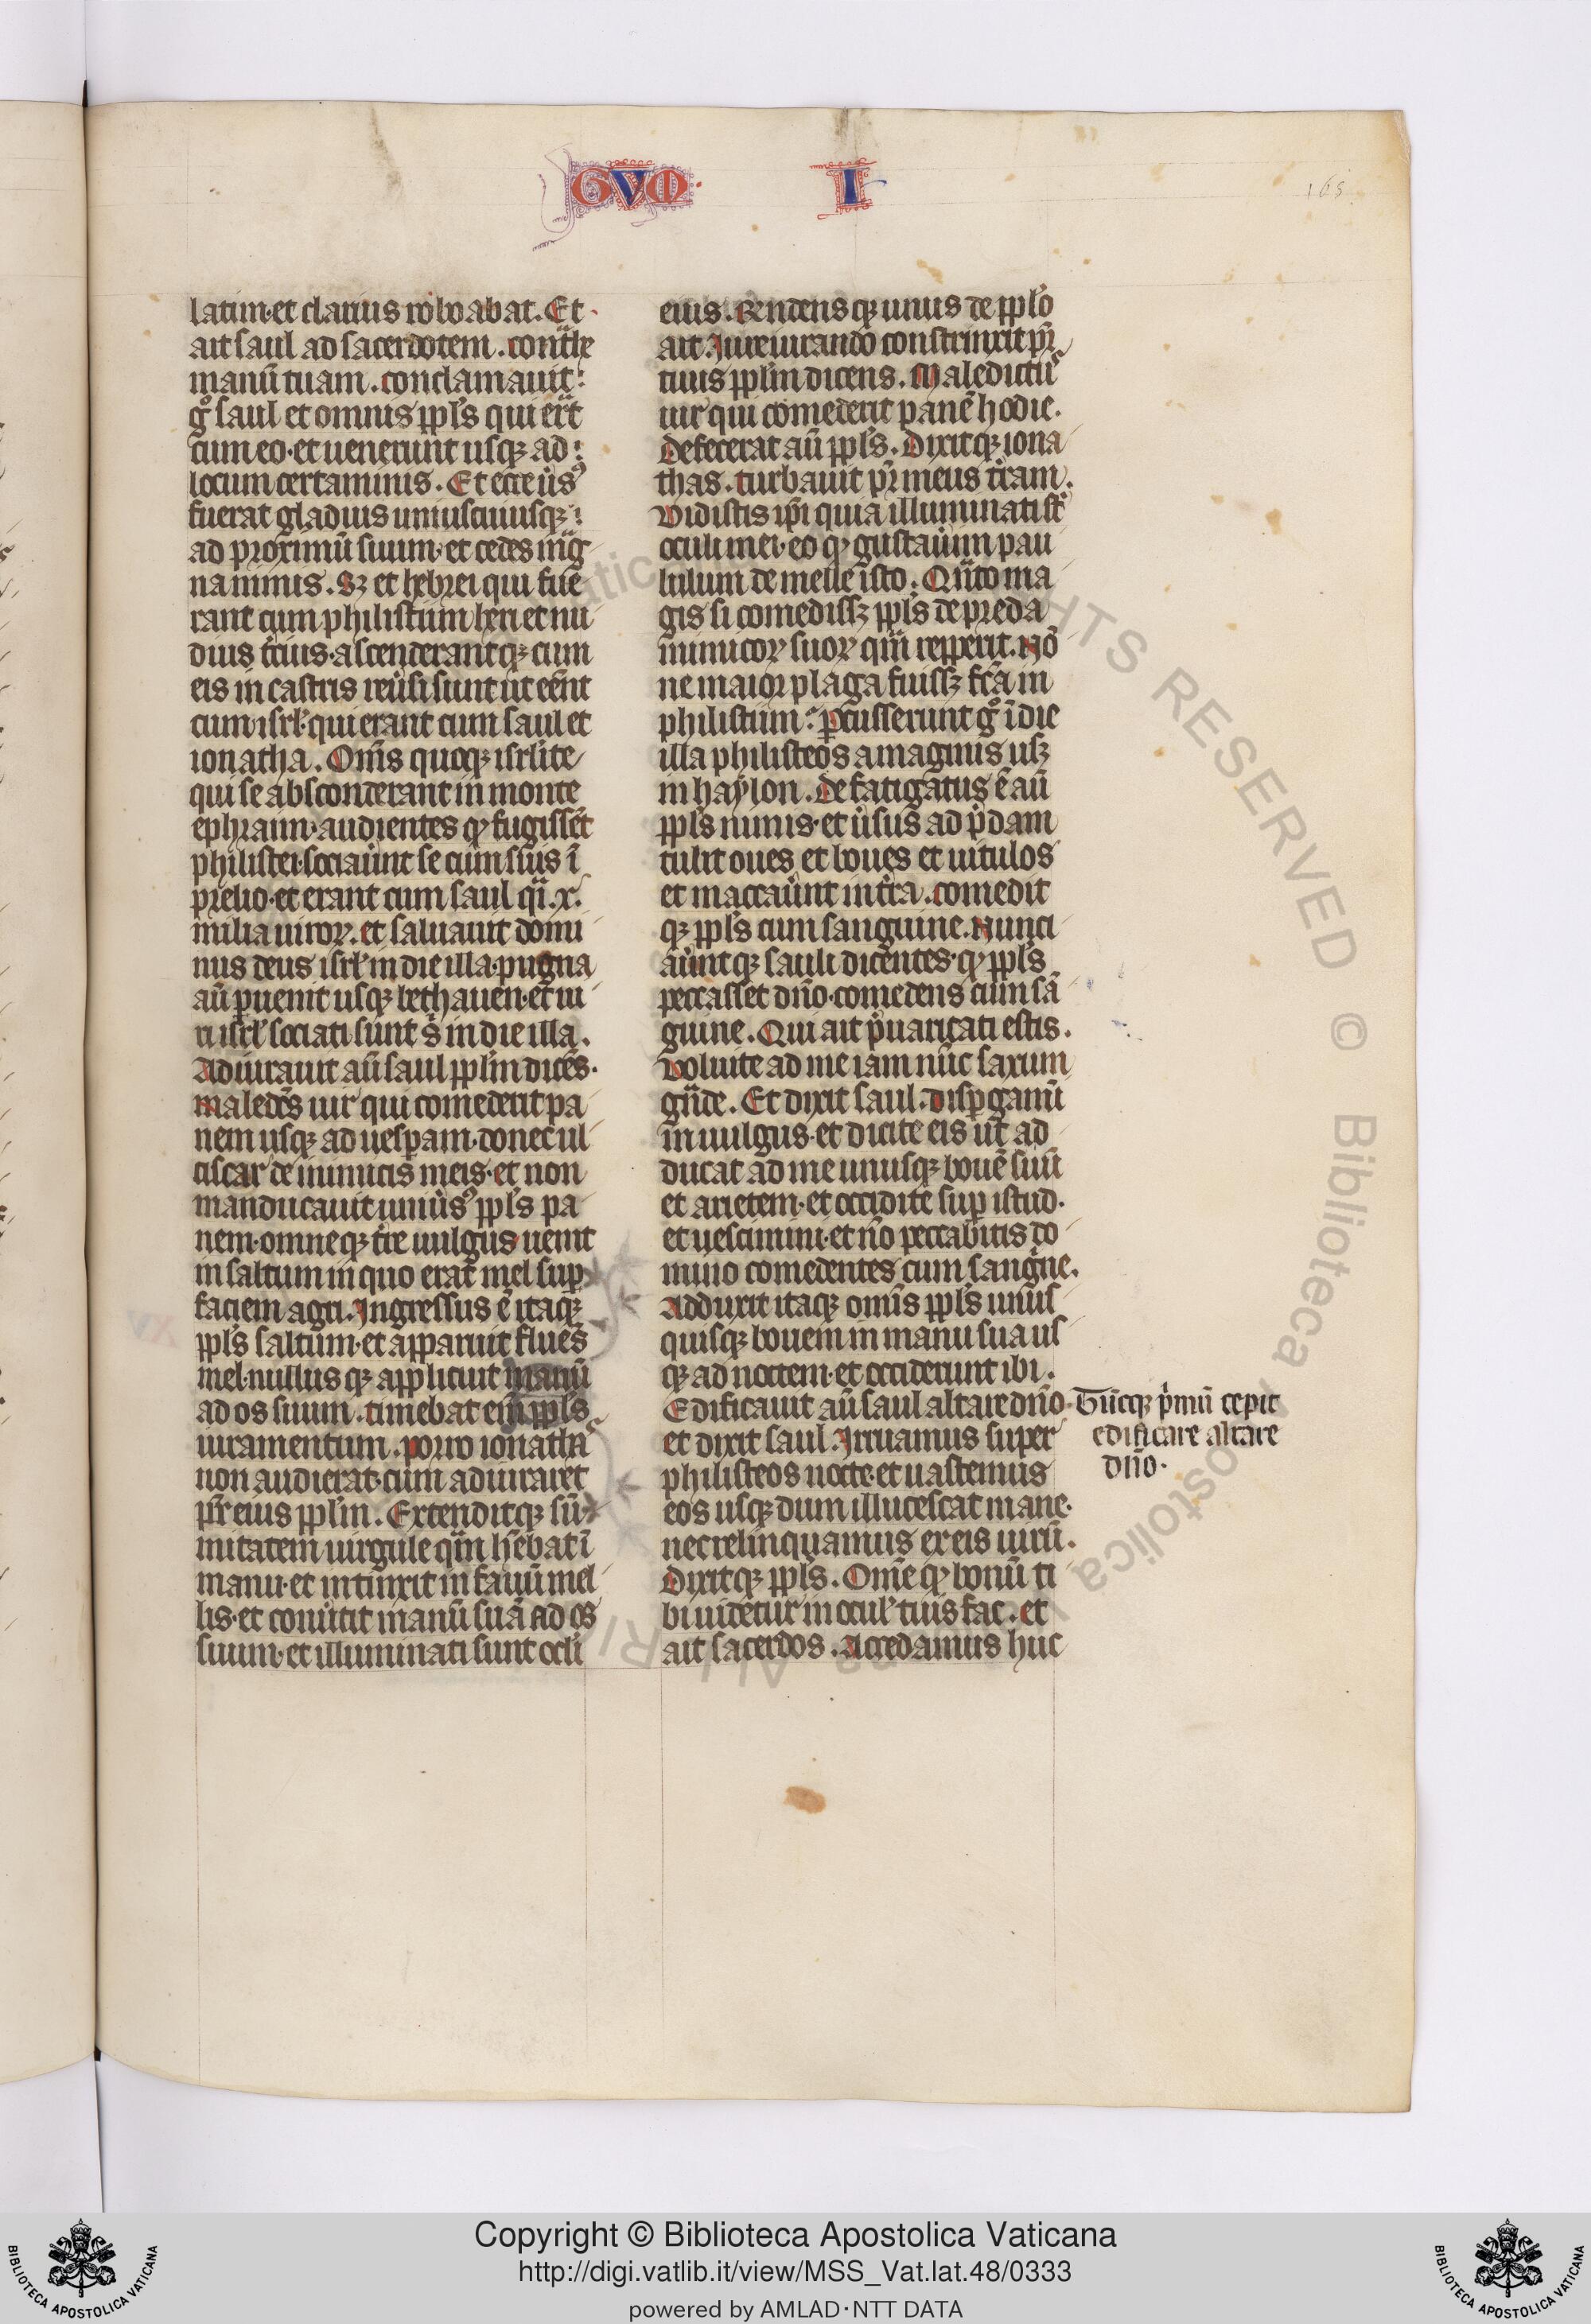 GVM I
165
latim·et clarius roboabat. Et
ait saul ad sacerdotem. contͣhe
manū tuam. conclamauit
gͦ saul et omnis ppl̓s qui erͣt
cum eo·et uenerunt usqꝫ ad
locum certaminis. Et ecce u̓sꝰ
fuerat gladius uniuscuiusqꝫ
ad proximū suum·et cedes mͣg
na nimis. Sꝫ et hebrei qui fue
rant cum philistiim heri et nu
dius tc̓ius·ascenderantqꝫ cum
eis in castris reu̓si sunt ut eēnt
cum isrl̓·qui erant cum saul et
ionatha. Om̄s quoqꝫ isrl̓ite
qui se absconderant in monte
ephraim·audientes qꝫ fugissēt
philistei·sociau̓nt se cum suis ī
prelio·et erant cum saul qͣi .x.
milia uiroꝝ. et saluauit domi
nus deus isrl̓ in die illa·pugna
aū ꝑuenit usqꝫ bethauen·et ui
ri isrl̓ sociati sunt s̓ in die illa.
Adiurauit aū saul pplm̄ dicēs.
maledc̄s uir qui comederit pa
nem usqꝫ ad uesꝑam·donec ul
ciscar de inimicis meis·et non
manducauit uniu̓sꝰ ppl̓s pa
nem·omneqꝫ t̓re uulgus uenit
in saltum in quo erat mel suꝑ
faciem agri. Ingressus ē itaqꝫ
ppl̓s saltum·et apparuit fluēs
mel·nullusqꝫ applicuit manū
ad os suum. timebat eni̅ ppl̓s
iuramentum. porro ionathas
non audierat·cum adiuraret
pr̄ eius pplm̄. Extenditqꝫ sū
mitatem uirgule qͣm hēbat ī
manu·et intinxit in fauū mel
lis·et conu̓tit manū suā ad os
suum·et illuminati sunt ocl̓i
eius. Rn̄densqꝫ unus de ppl̓o
ait. Iureiurando constrinxit pr̄
tuus pplm̄ dicens. Maledictꝰ
uir qui comederit panē hodie.
defecerat aū ppl̓s. Dixitqꝫ iona
thas. turbauit pr̄ meus t̓ram.
Vidistis ip̄i quia illuminati st̄
oculi mei·eo qꝫ gustau̓im pau
lulum de melle isto. Qͣnto ma
gis si comedissꝫ ppl̓s de preda
inimicoꝝ suoꝝ qͣm repperit. Nō
ne maior plaga fuissꝫ fc̄a in
philistiim? ꝑcusserunt gͦ ī die
illa philisteos a magmis usqꝫ
in haylon. Defatigatus ē aū
ppl̓s nimis·et u̓sus ad p̓dam
tulit oues et boues et uitulos
et mactau̓unt in t̓ra. comedit
qꝫ ppl̓s cum sanguine. Nunci
au̓untqꝫ sauli dicentes·qꝫ ppl̓s
peccasset dn̄o·comedens cum sā
guine. Qui ait p̓uaricati estis.
Voluite ad me iam nūc saxum
gͣnde. Et dixit saul. disꝑgimī
in uulgus·et dicite eis ut ad
ducat ad me unusqꝫ bouē suū
et arietem·et occidite suꝑ istud.
et uescimini·et nō peccabitis do
mino comedentes cum sangͥne.
Adduxit itaqꝫ omīs ppl̓s unus
quisqꝫ bouem in manu sua us
qꝫ ad noctem·et occiderunt ibi.
Edificauit aū saul altare dn̄o·
et dixit saul. Irruamus super
philisteos nocte·et uastemus
eos usqꝫ dum illucescat mane·
nec relinquamus ex eis uirū.
Dixitqꝫ ppl̓s. Om̄e qꝫ bonū ti
bi uidetur in ocul̓ tuis fac. et
ait sacerdos. Accedamus huc
Tūcqꝫ p̓mū cepit
edificare altare
dn̄o.
Copyright © Biblioteca Apostolica Vaticana
http://digi.vatlib.it/view/MSS_Vat.lat.48/0333
powered by AMLAD·NTT DATA
BIBLIOTECA APOSTOLICA VATICANA
BIBLIOTECA APOSTOLICA VATICANA